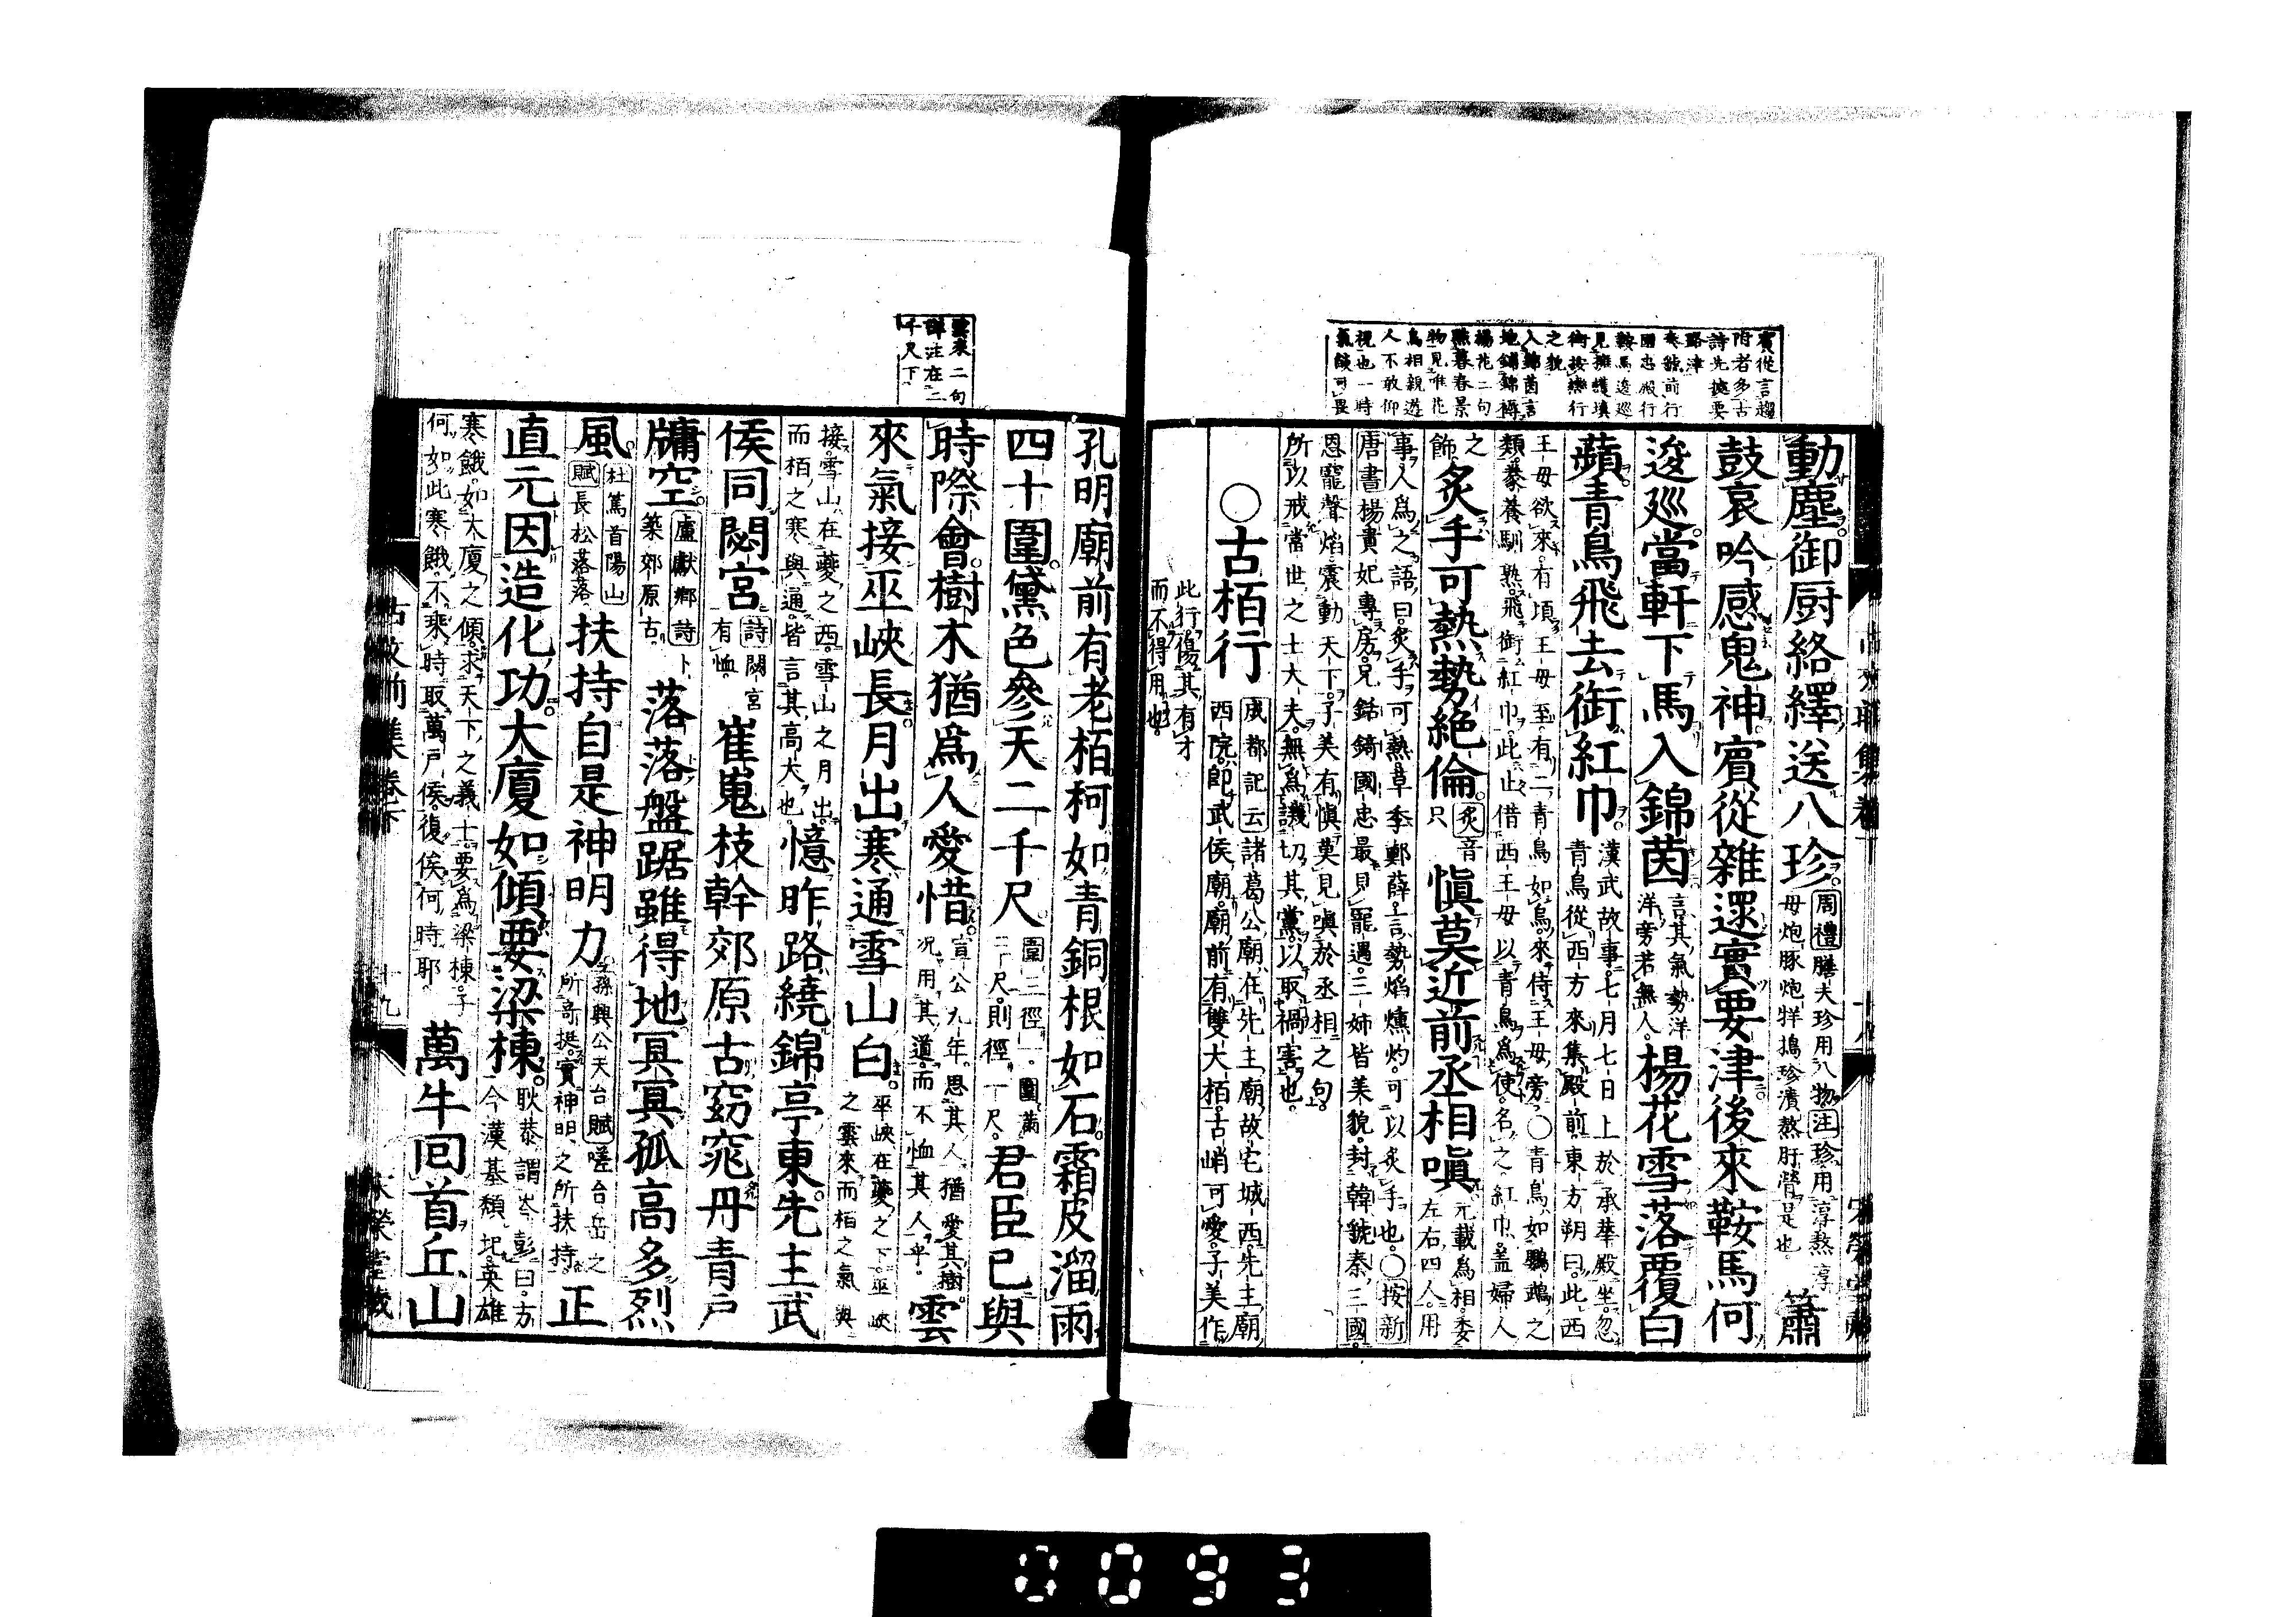 賓從言趨
附者多古
詩先據要
路津
來鞍前行
國忠服行
鞍馬逡巡
見擁護填
街按轡行
之貌
入錦茵言
地鋪錦褥
楊花二句
無暮春景
物見唯花
鳥相親遊
人不敢仰
視也一時
氣焰可畏
動塵御厨絡繹送八珍周禮膳夫珍用八物注珍用淳熬淳母炮豚炮牂擣珍漬熬肝膋是也簫
鼓哀吟感鬼神賓從雜遝實要津後來鞍馬何
逡廵當軒下馬入錦茵言其氣勢洋洋旁若無人楊花雪落覆白
蘋青鳥飛去銜紅巾漢武故事七月七日上於承華殿坐忽青鳥從西方來集殿前東方朔曰此西
王母欲來有頃王母至有二青鳥如烏來侍王母旁○青鳥如鸚鵡之
類豢養馴熟飛銜紅巾此止借西王母以青鳥爲使名之紅巾盖婦人
之飾炙手可熱勢絶倫炙音只愼莫近前丞相嗔元載爲相委左右四人用
事人爲之語曰炙手可熱章李鄭薛言勢焰燻灼可以炙手也○按新
唐書楊貴妃專房兄銛錡國忠最見寵遇三姉皆美貌封韓虢秦三國
恩寵聲焰震動天下子美有愼莫見嗔於丞相之句
所以戒當世之士大夫無爲譏切其黨以取禍害也
○古栢行成都記云諸葛公廟在先主廟故宅城西先主廟
西院卽武侯廟廟前有雙大栢古峭可愛子美作
此行傷其有才
而不得用也
雲來二句
詳注在二
千尺下
孔明廟前有老栢柯如青銅根如石霜皮溜雨
四十圍黛色參天二千尺圍三徑一圍萬二尺則徑一尺君臣已與
時際會樹木猶爲人愛惜宣公九年思其人猶愛其樹况用其道而不恤其人乎雲
來氣接巫峽長月出寒通雪山白巫峽在夔之下巫峽之雲來而栢之氣與
接雪山在夔之西雪山之月出
而栢之寒與通皆言其高大也憶昨路繞錦亭東先主武
侯同閟宮詩閟宮有恤崔嵬枝幹郊原古窈窕丹青戸
牖空盧獻鄉詩卜築郊原古落落盤踞雖得地冥冥孤高多烈
風杜篤首陽山賦長松落落扶持自是神明力孫興公天台賦嗟台岳之所奇挺實神明之所扶持正
直元因造化功大廈如傾要梁棟耿恭謂岑彭曰方今漢基頹圯英雄
寒餓如大廈之傾求天下之義士要爲梁棟子
何如此寒餓不乘時取萬戸侯復俟何時耶萬牛囘首丘山
古文前集卷下
十九
0093